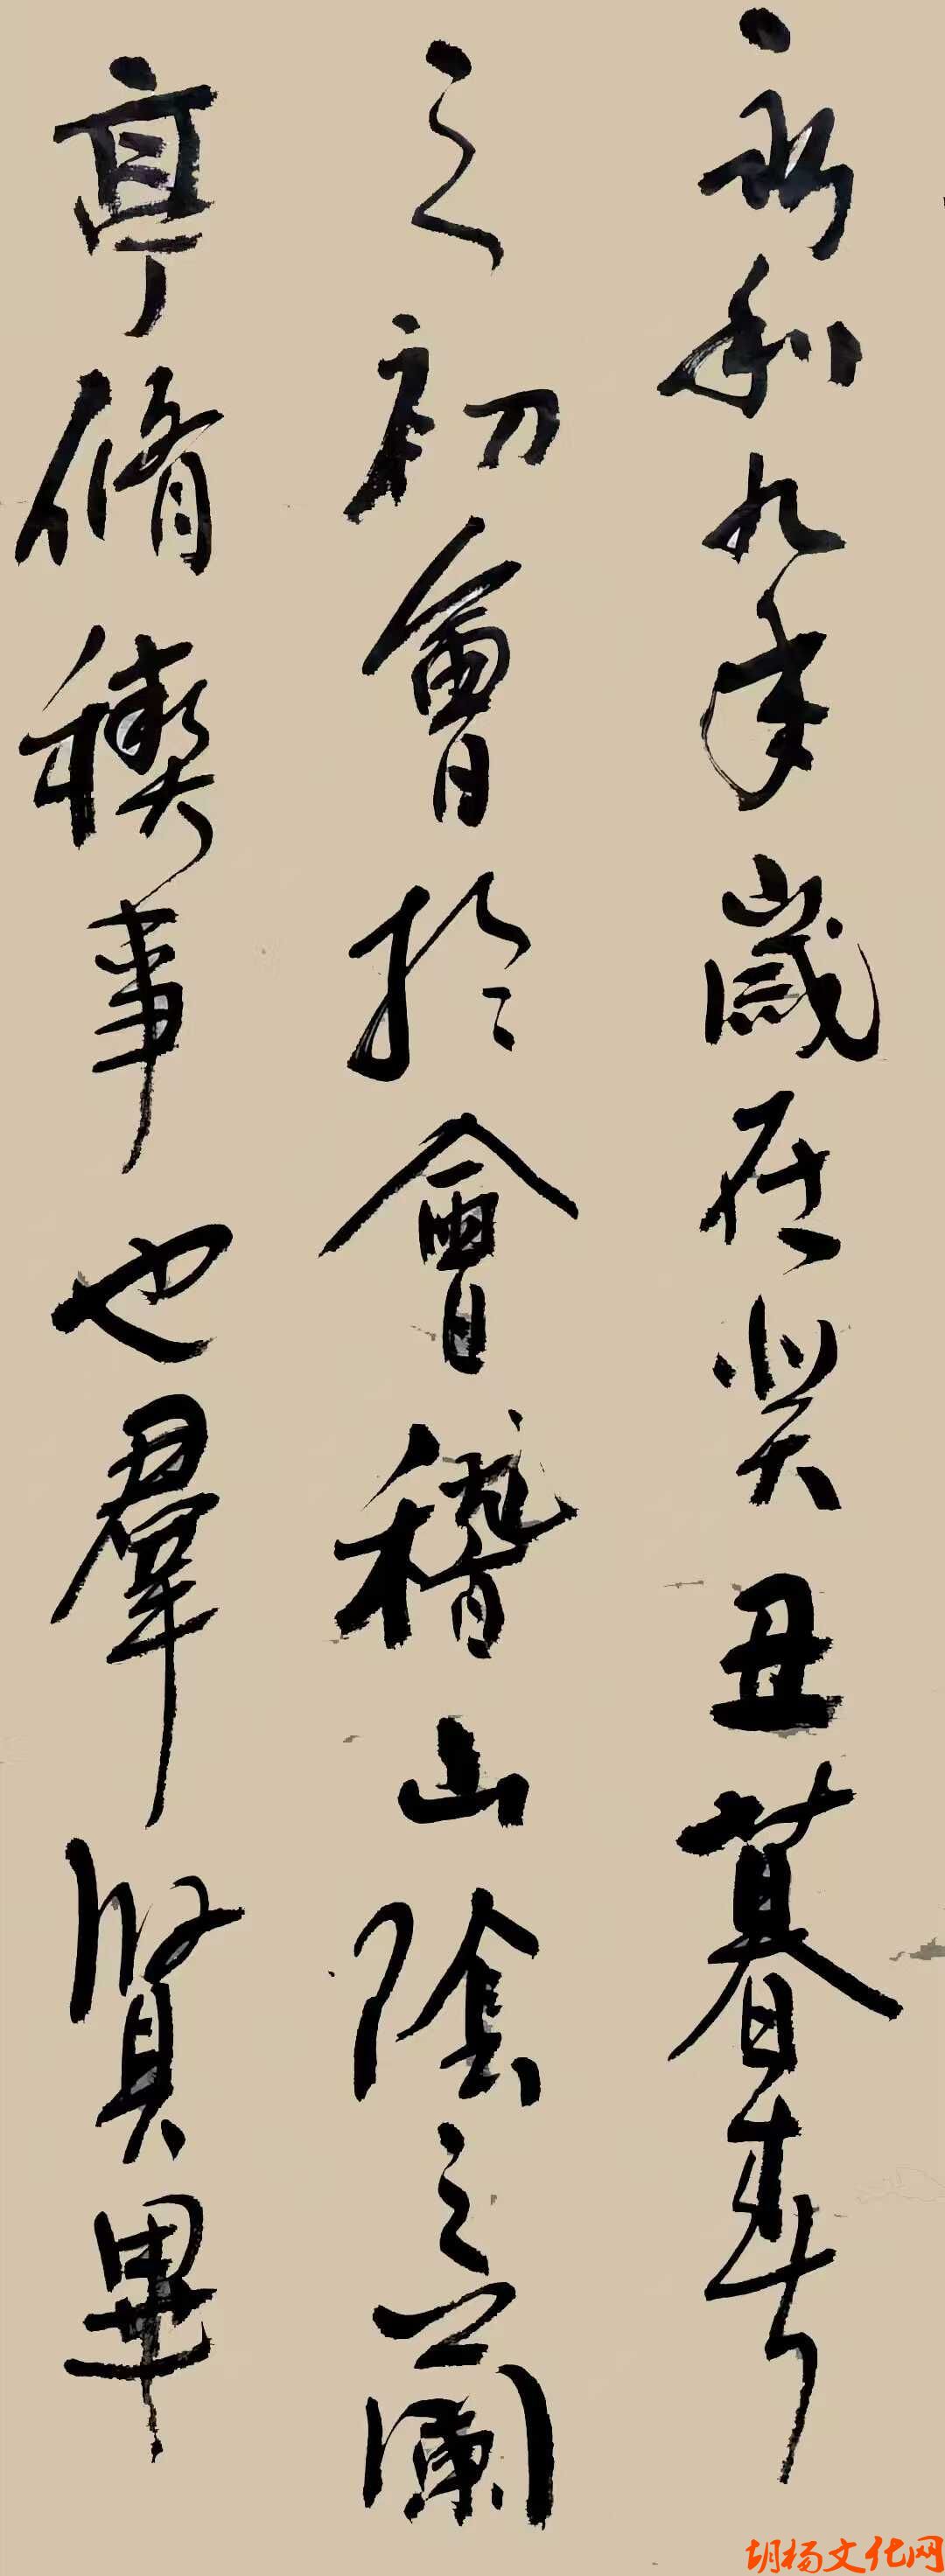 永和九年歲在癸丑暮春
之初會於會稽山陰之蘭
亭脩稧事也羣賢畢
胡杨文化网